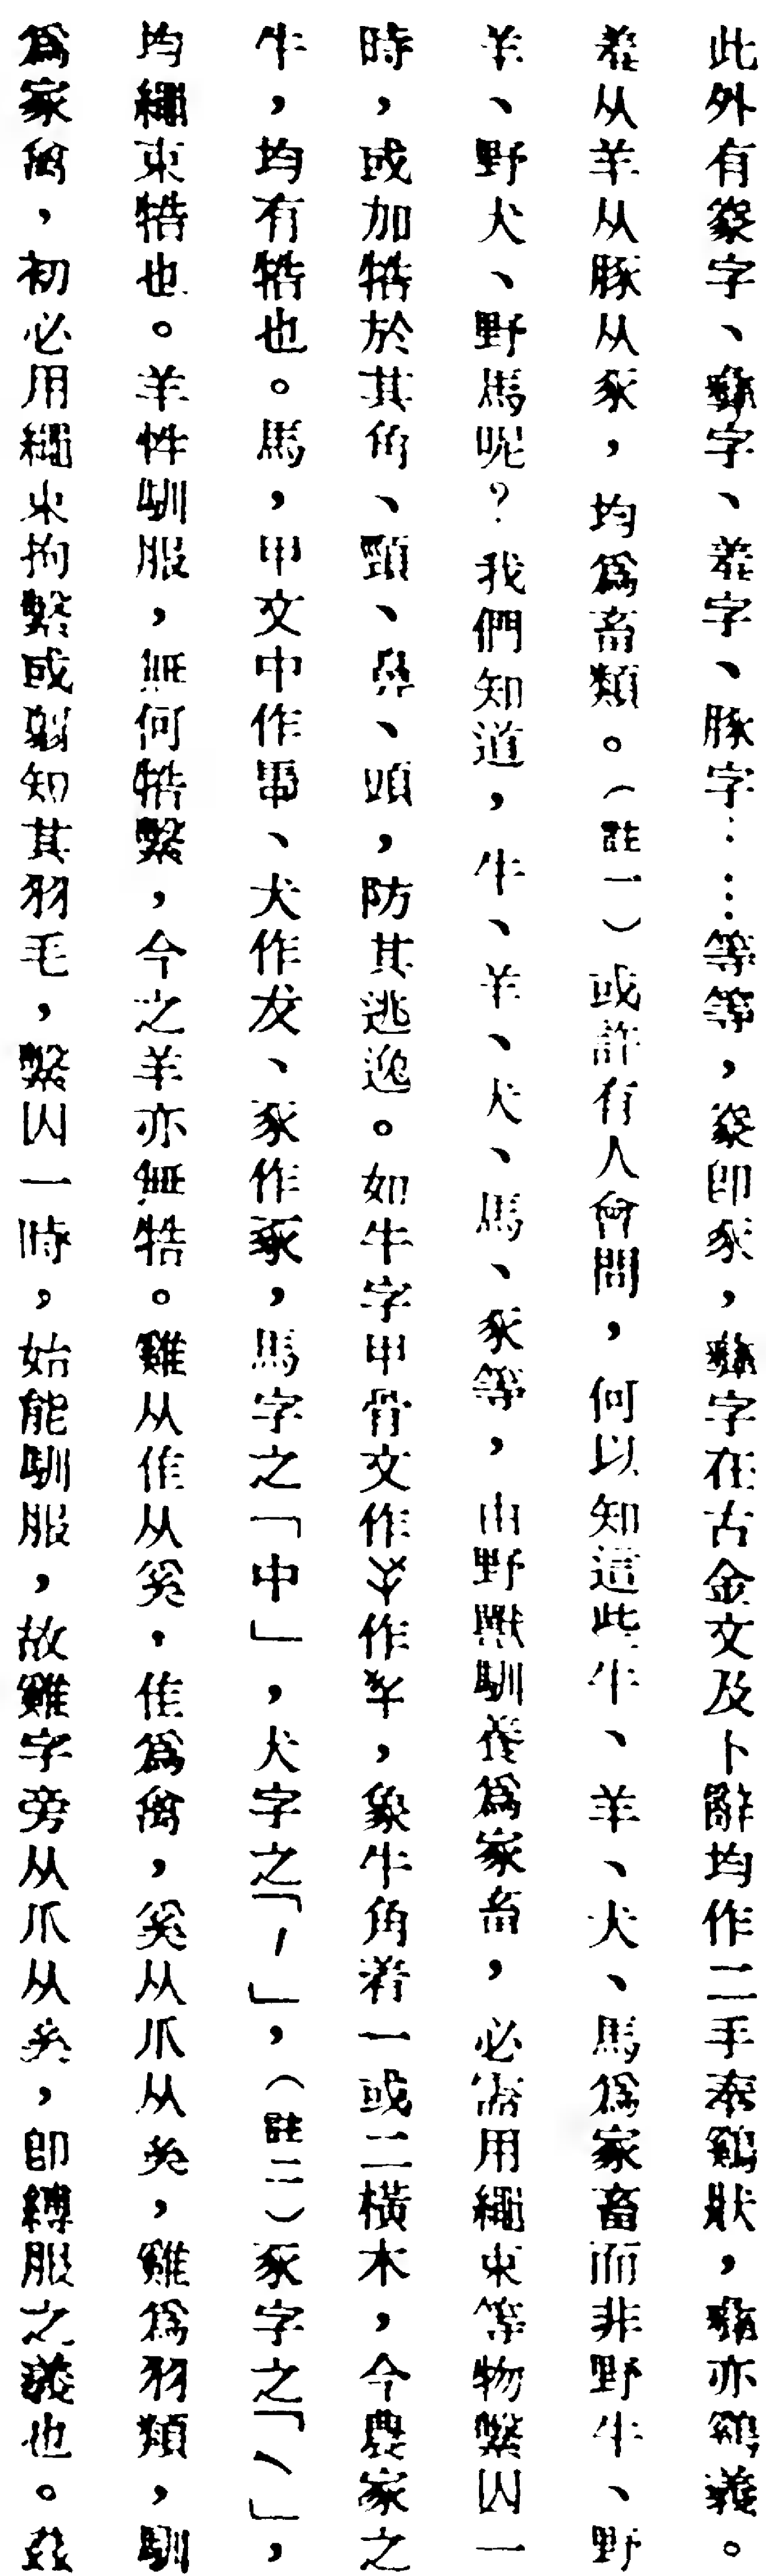 此外有豢字、彝字、羞字、豚字……等等,豢即豕,彝字在古金文及卜辭均作二手奉鷄狀,彝亦鷄義。
羞从羊从豚从豕,均為畜類。(註一)或許有人會問,何以知道此牛、羊、犬、馬為家畜而非野牛、野
羊、野犬、野馬呢?我們知道,牛、羊、犬、馬、豕等,由野獸馴養為家畜,必需用繩束等物繫囚一
時,或加牿於其角、頸、鼻、頭,防其逃逸。如牛字甲骨文作作,象牛角着一或二橫木,今農家之
牛,均有牿也。馬,甲文中作、犬作犮、豕作豖,馬字之「中」,犬字之「丿」,(註二)豕字之「㇏」,
均繩束牿也。羊性馴服,無何牿繫,今之羊亦無牿。雞从隹从奚,隹為禽,奚从爪从,雞為羽類,馴
為家禽,初必用繩束拘繫或剪知其羽毛,繫囚一時,始能馴服,故雞字旁从爪从,即縛服之義也。茲